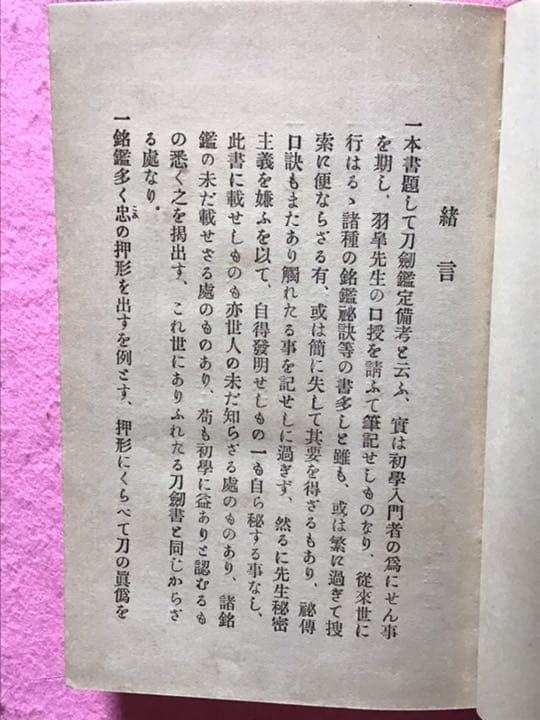 緒言
一本書題して刀劍鑑定備考と云ふ、實は初學入門者の爲にせん事
を期し、羽皐先生の口授を請ふて筆記せしものなり、從來世に
行はるゝ諸種の銘鑑祕訣等の書多しと雖も、或は繁に過ぎて搜
索に便ならざる有、或は簡に失して其要を得ざるもあり、祕傳
口訣もまたあり觸れたる事を記せしに過ぎず、然るに先生秘密
主義を嫌ふを以て、自得發明せしもの一も自ら秘する事なし、
此書に載せしものも亦世人の未だ知らざる處のものあり、諸銘
鑑の未だ載せざる處のものあり、苟も初學に益ありと認むるも
の悉く之を揭出す、これ世にありふれたる刀劍書と同じからざ
る處なり。
一銘鑑多く忠の押形を出すを例とす、押形にくらべて刀の眞僞を